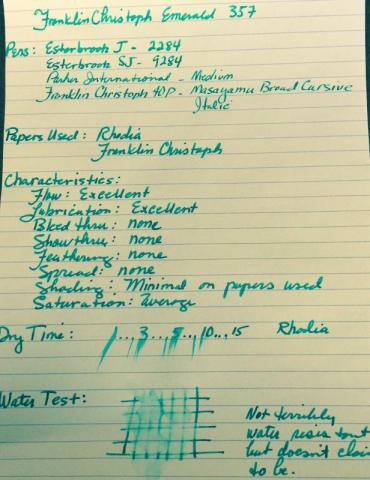 Franklin Christoph Emerald 357
Pens: Esterbrook J - 2284
Esterbrook SJ - 9284
Parker International - Medium
Franklin Christoph 40P - Masayama Broad Cursive
Italic
Papers Used: Rhodia
Franklin Christoph
Characteristics:
Flow: Excellent
Lubrication: Excellent
Bleed thru: none
Show thru: none
Feathering: none
Spread: none
Shading: Minimal on papers used
Saturation: Average
Dry Time: 1...3...8...10...15 Rhodia
Water Test:
Not terribly
water resistant
but doesn't claim
to be.